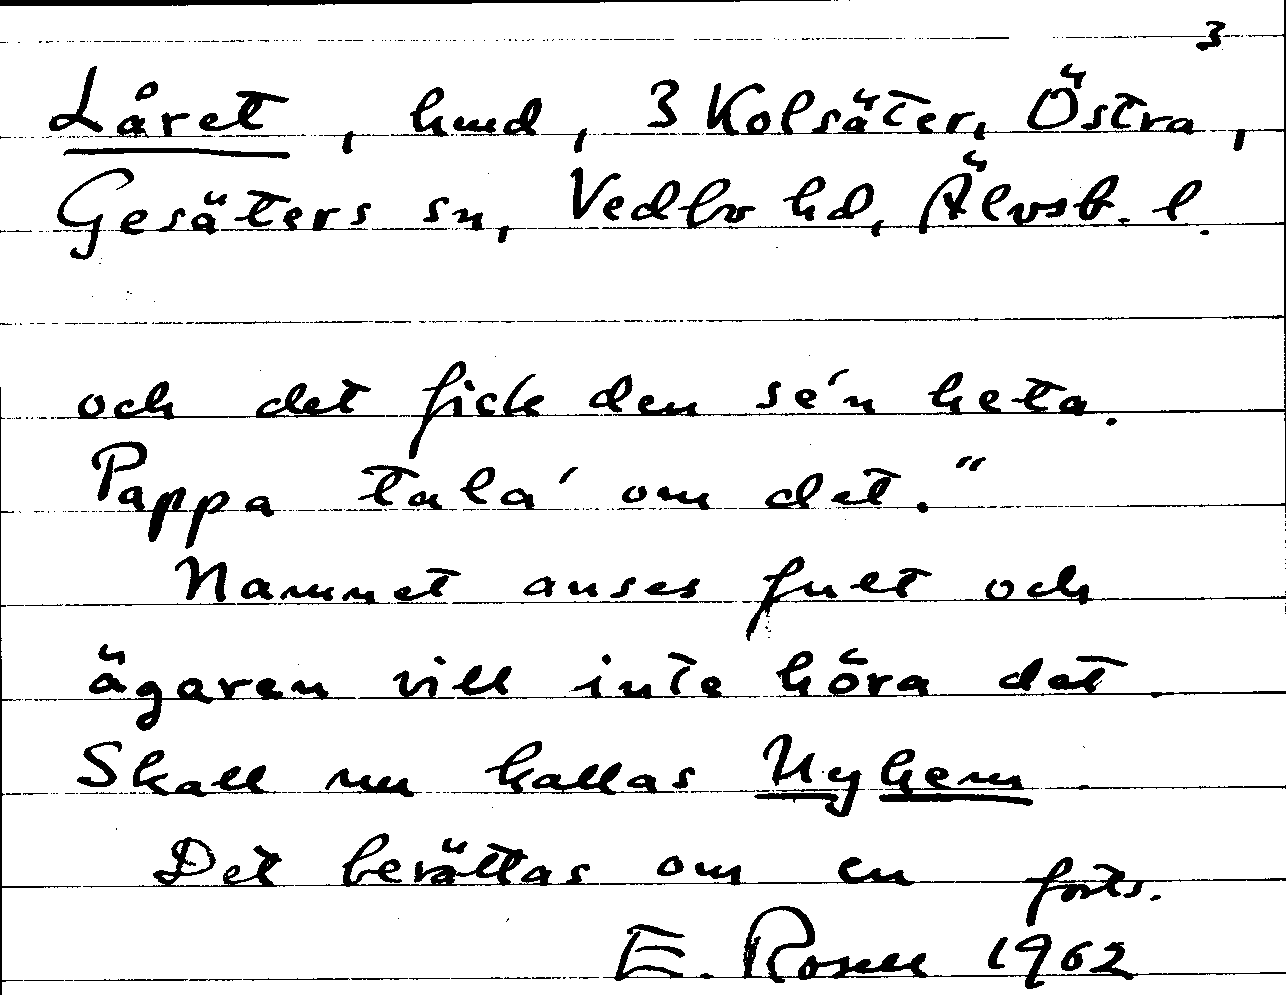 3
Låret, hmd, 3 Kolsäter, Östra,
Gesäters sn, Vedbo hd, Älvsb. l.
och det fick den se'n heta.
Pappa tala' om det."
Namnet anses fult och
ägaren vill inte höra det.
Skall nu kallas Nyhem
Det berättas om en forts.
E. Rosell 1962